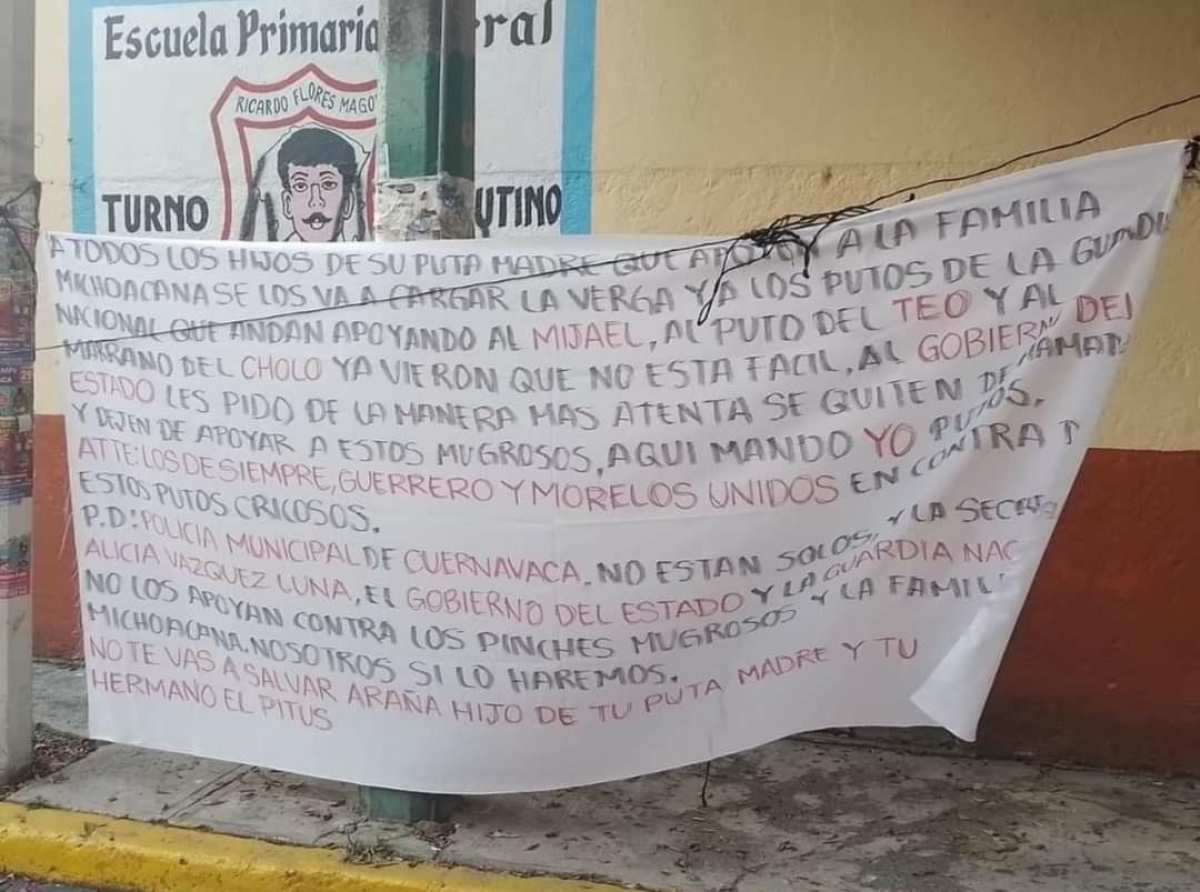 Escuela Primaria ral
RICARDO FLORES MAGO
TURNO UTINO
A TODOS LOS HIJOS DE SU PUTA MADRE QUE APOYAN A LA FAMILIA
MICHOACANA SE LOS VA A CARGAR LA VERGA Y A LOS PUTOS DE LA GUARDIA
NACIONAL QUE ANDAN APOYANDO AL MIJAEL, AL PUTO DEL TEO Y AL
MARRANO DEL CHOLO YA VIERON QUE NO ESTA FACIL, AL GOBIERNO DEL
ESTADO LES PIDO DE LA MANERA MAS ATENTA SE QUITEN DE
Y DEJEN DE APOYAR A ESTOS MUGROSOS, AQUI MANDO YO PUTOS.
ATTE: LOS DE SIEMPRE, GUERRERO Y MORELOS UNIDOS EN CONTRA
ESTOS PUTOS CRICOSOS.
P.D: POLICIA MUNICIPAL DE CUERNAVACA, NO ESTAN SOLOS, Y LA SECRET
ALICIA VAZQUEZ LUNA, EL GOBIERNO DEL ESTADO Y LA GUARDIA NAC
NO LOS APOYAN CONTRA LOS PINCHES MUGROSOS Y LA FAMIL
MICHOACANA. NOSOTROS SI LO HAREMOS.
NO TE VAS A SALVAR ARAÑA HIJO DE TU PUTA MADRE Y TU
HERMANO EL PITUS